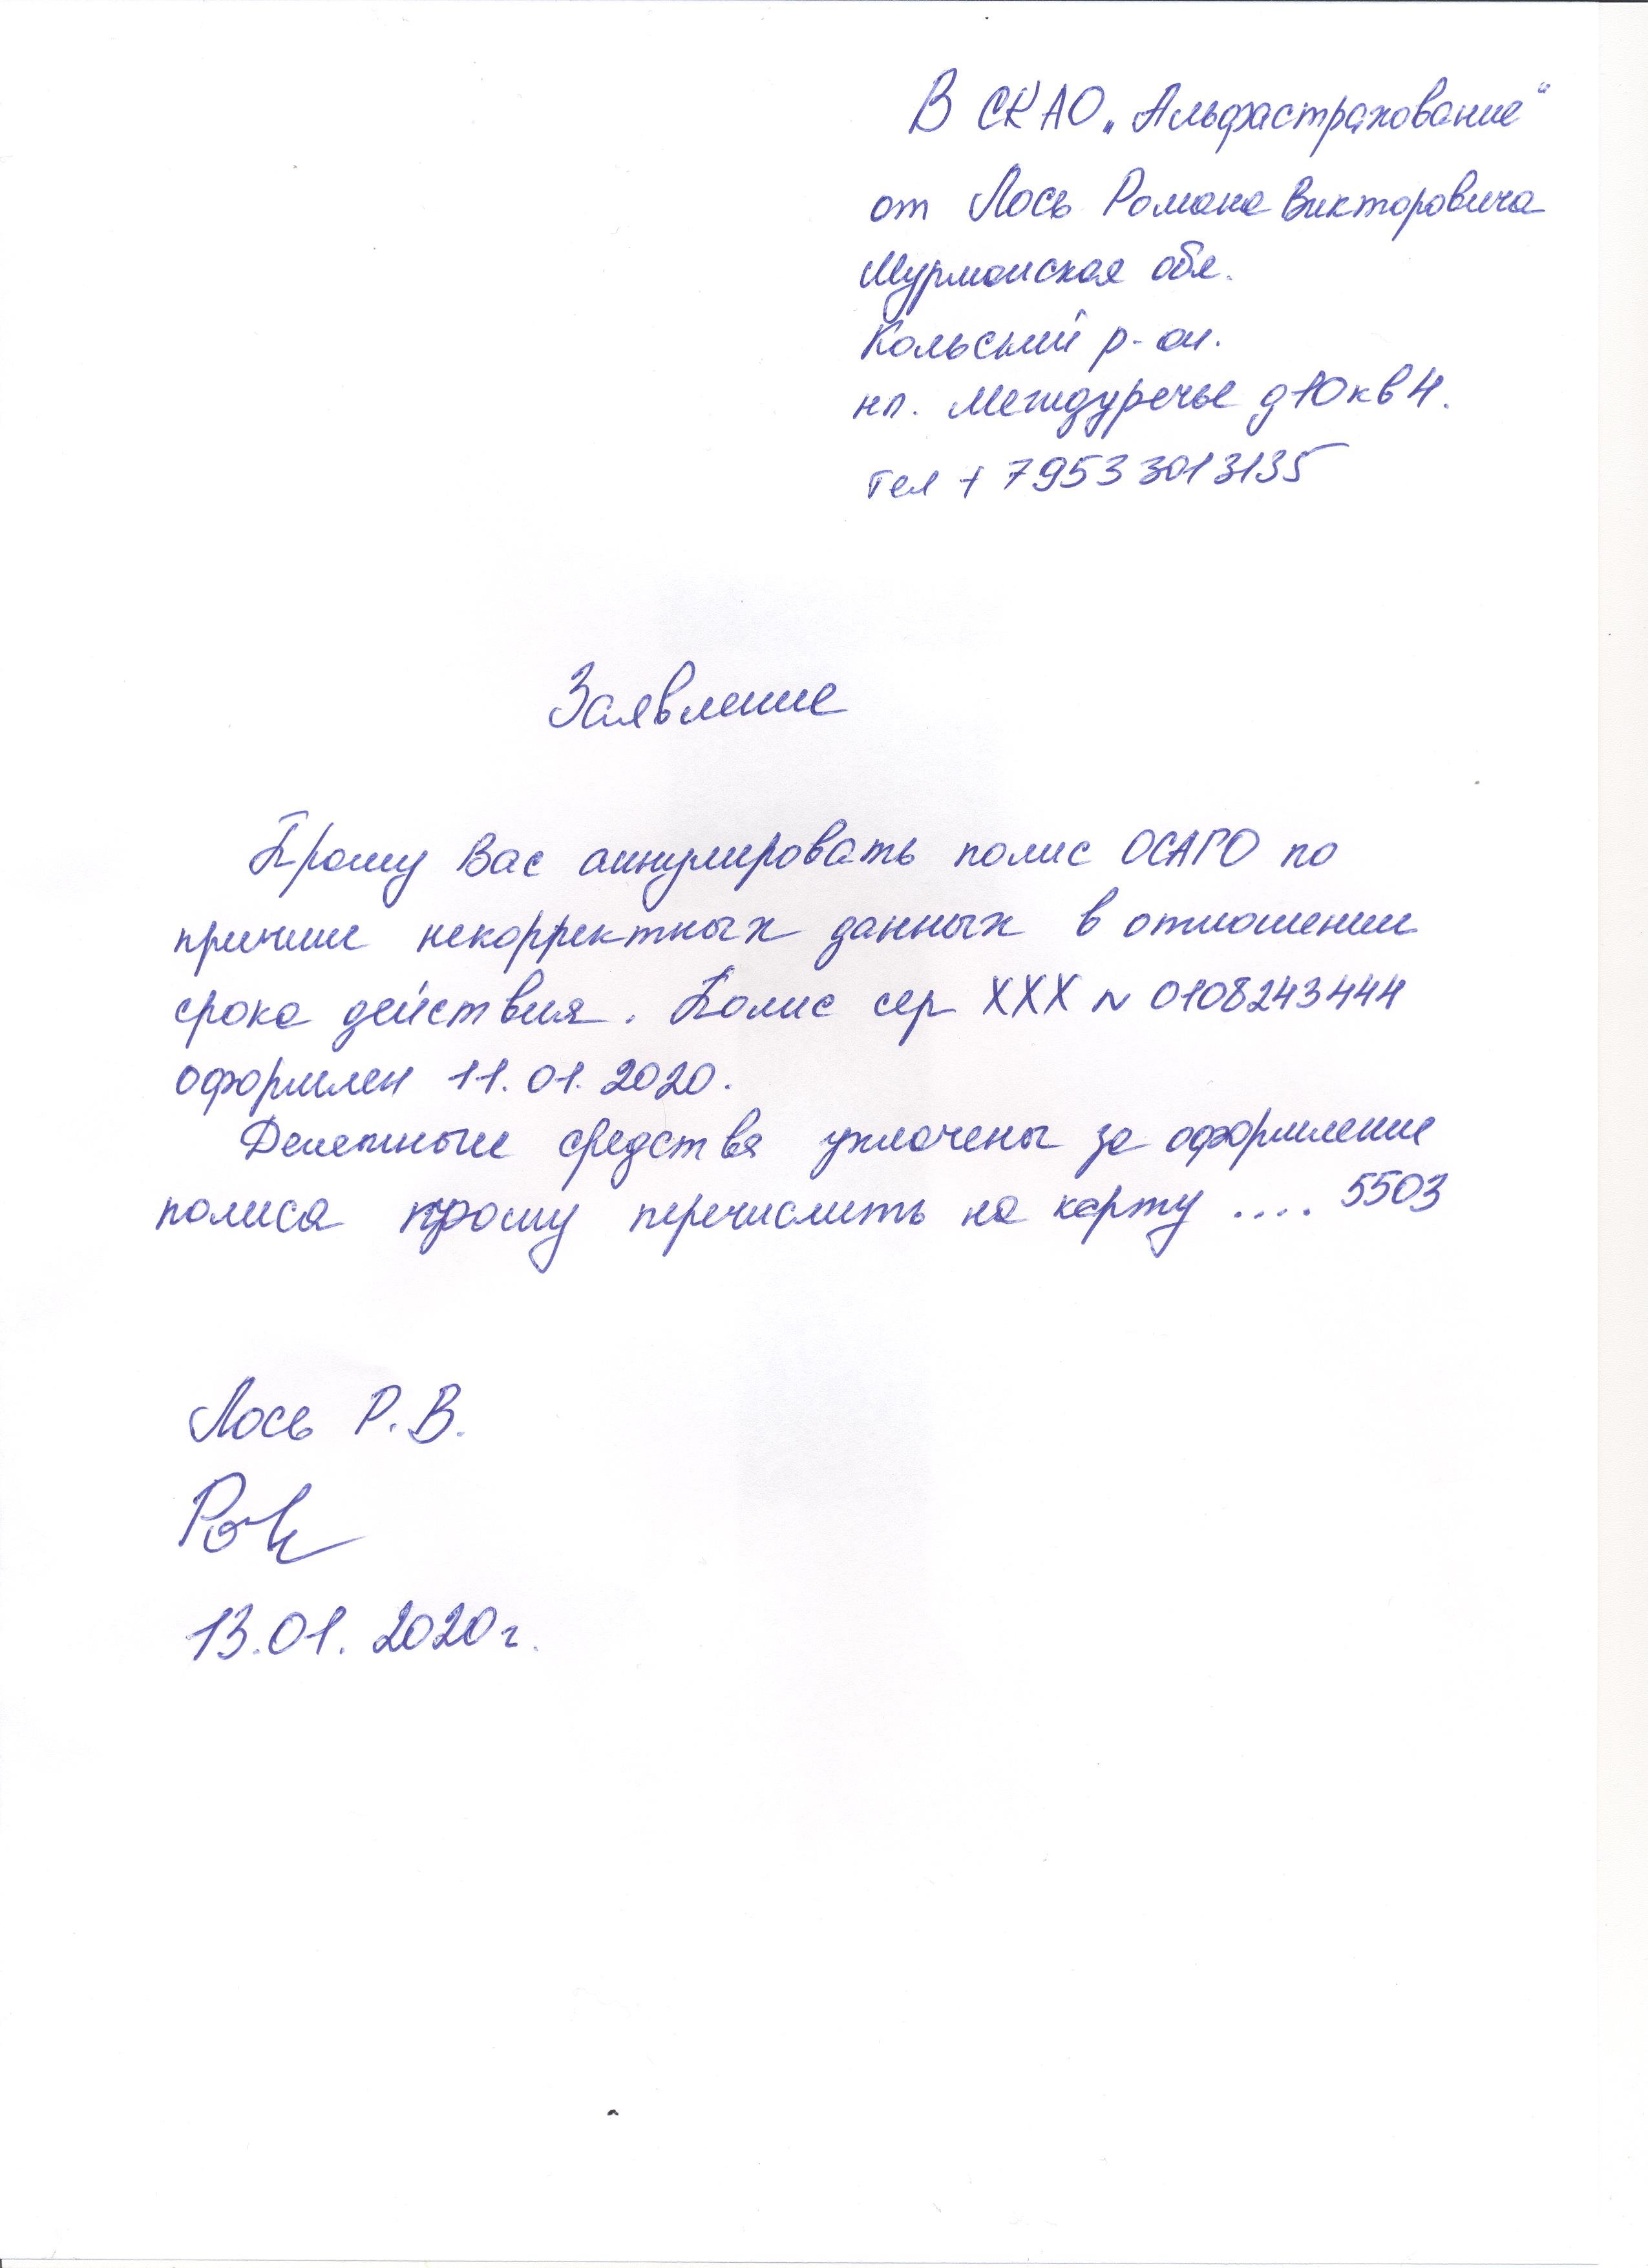 В СКАО „Альфастрахование“
от Лось Романа Викторовича
Мурманская обл.
Кольский р-он.
нп. Междуречье д10кв4.
тел +79533013135
Заявление
Прошу Вас аннулировать полис ОСАГО по
причине некорректных данных в отношении
срока действия. Полис сер XXX N 0108243444
оформлен 11.01.2020.
Денежные средства уплочены за оформление
полиса прошу перечислить на карту .... 5503
Лось Р.В.
13.01.2020г.